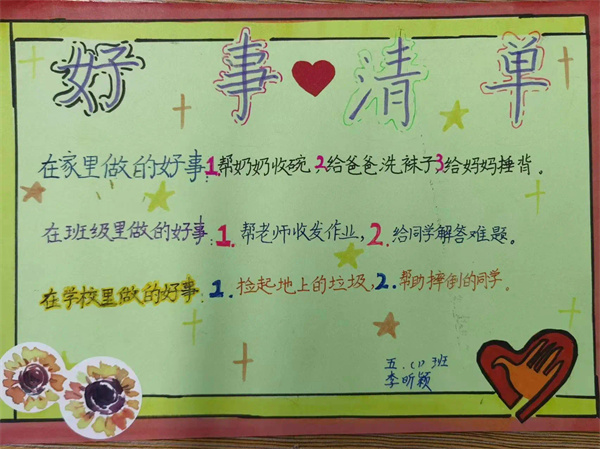 好事清单
在家里做的好事:1.帮奶奶收碗,2.给爸爸洗袜子3给妈妈捶背。
在班级里做的好事:1.帮老师收发作业,2.给同学解答难题。
在学校里做的好事:1.捡起地上的垃圾,2.帮助摔倒的同学。
五.(1)班
李昕颖